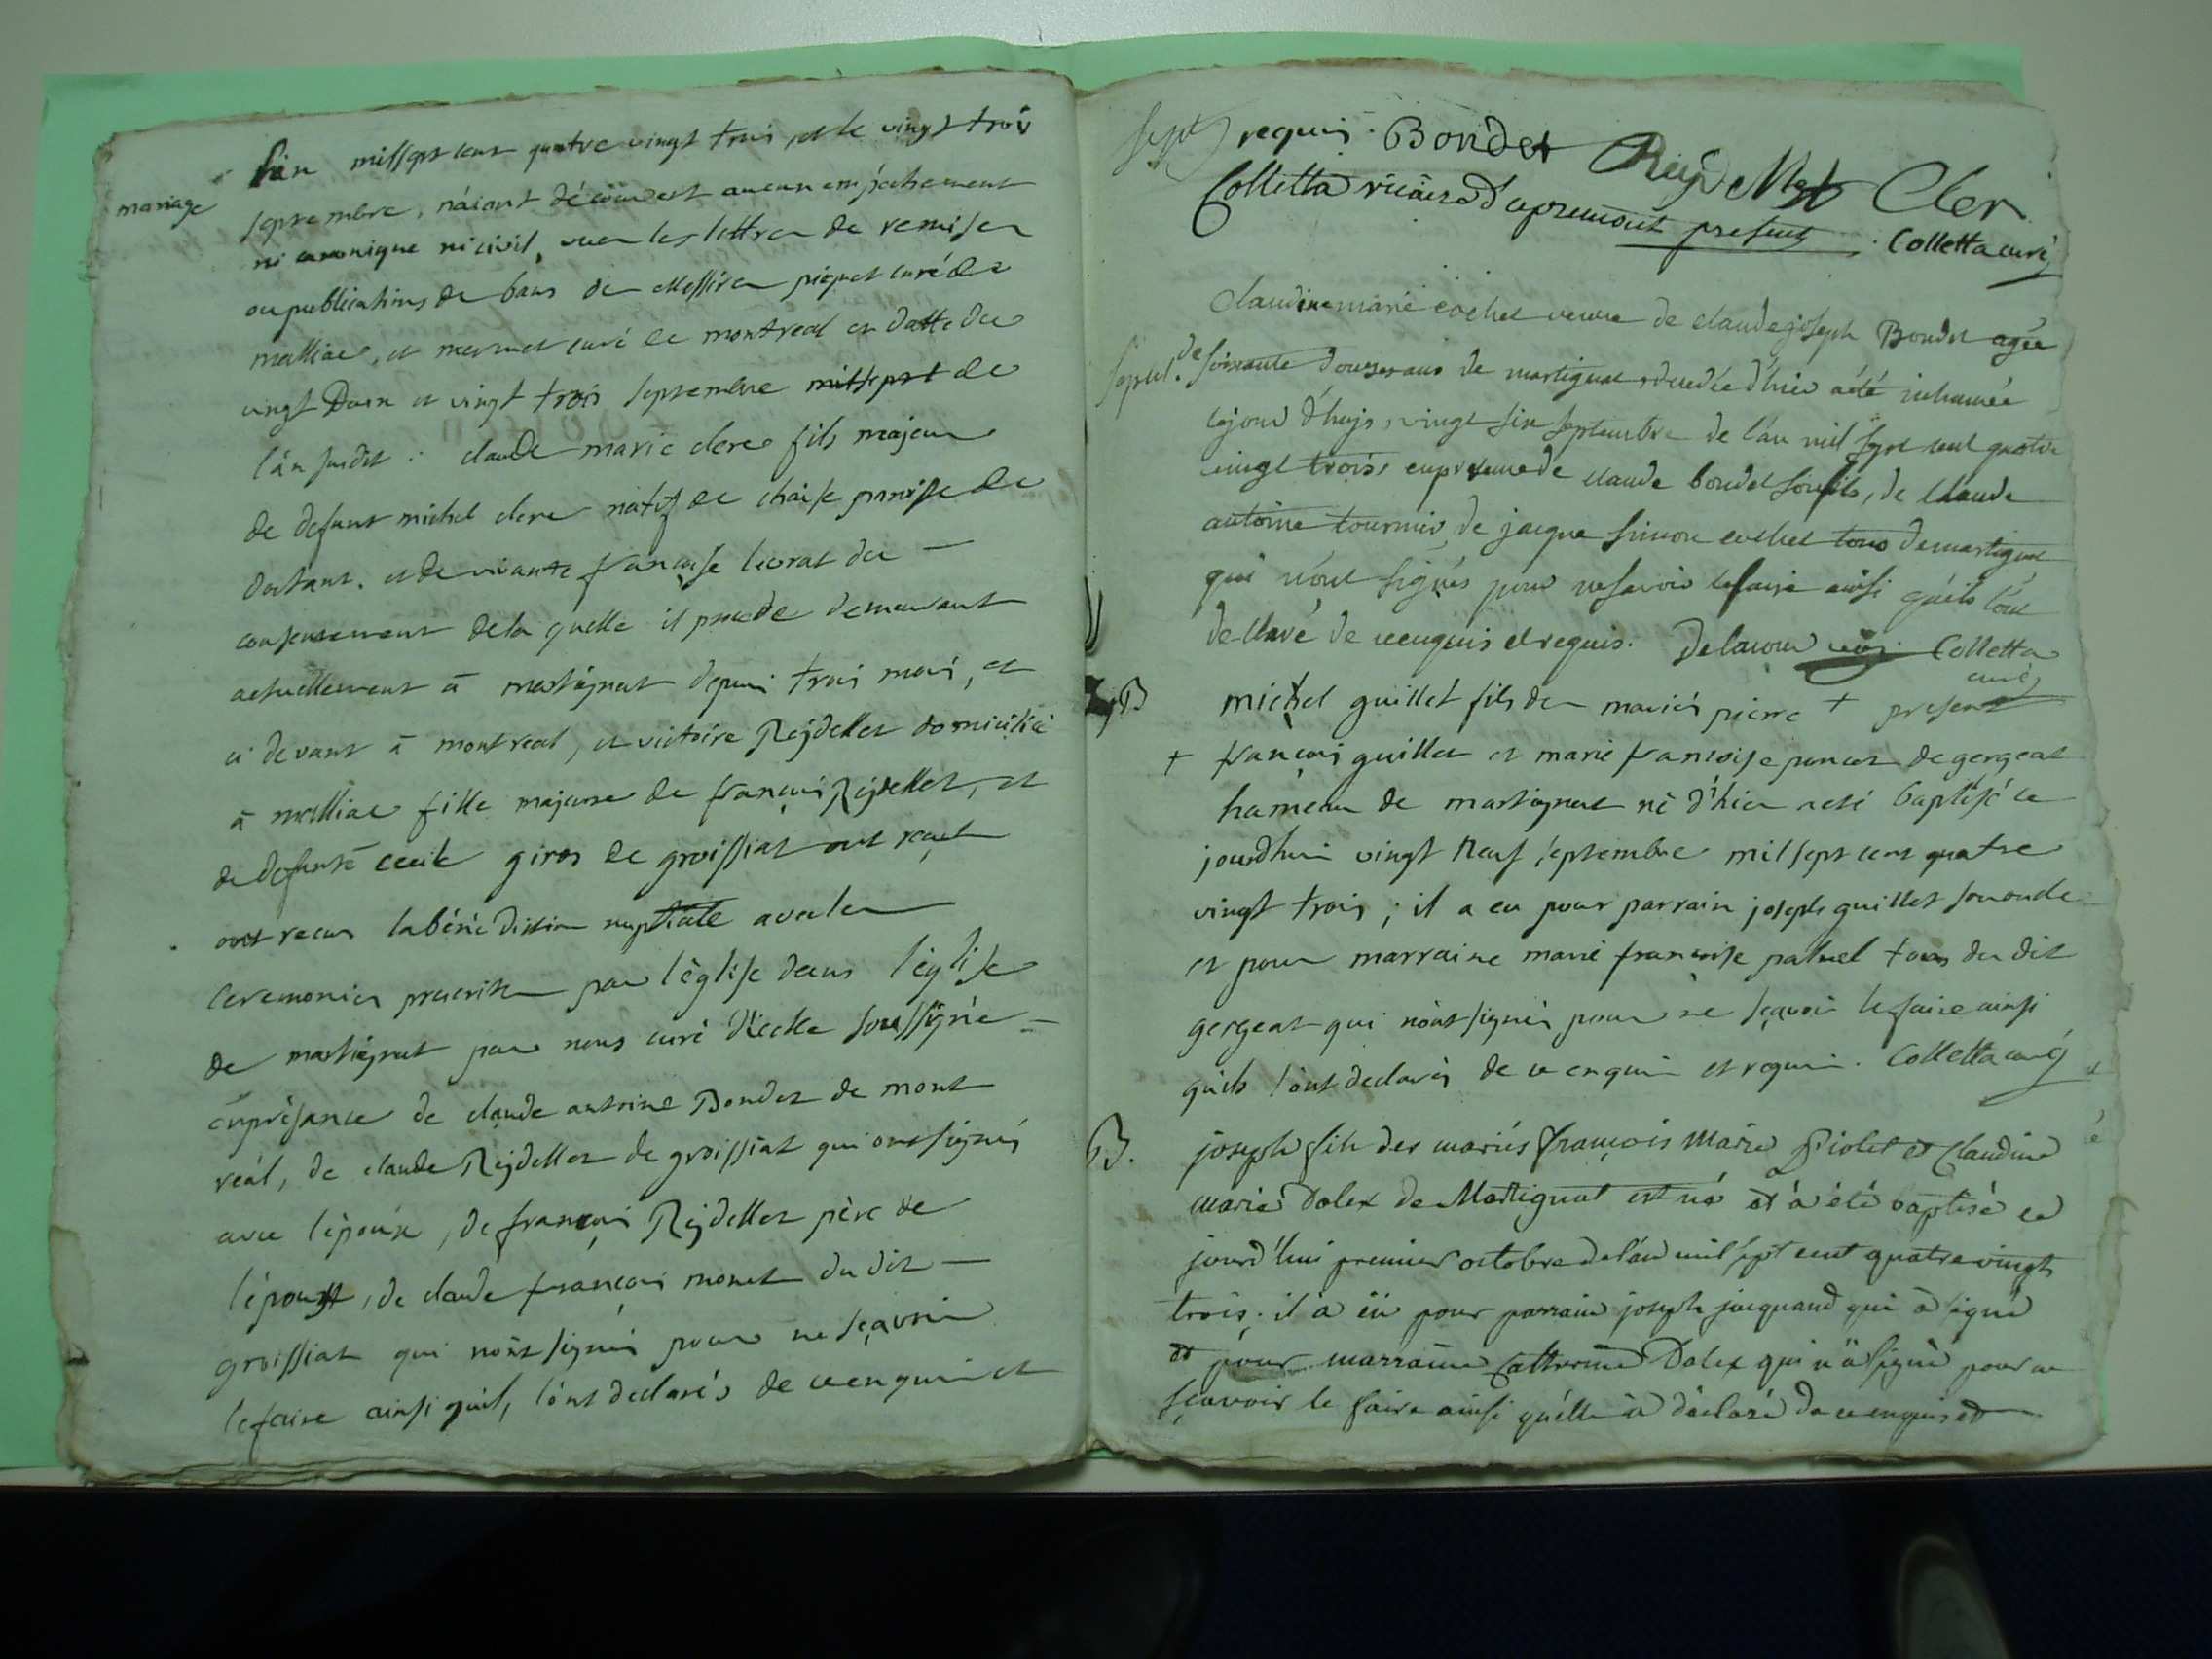 mariage
l'an mil sept cent quatre vingt trois, et le vingt trois
septembre, n'áiant découvert aucun empêchement
ni canonique ni civil, vu les lettres de remise
ou publications de bans de messire curé de
melliac, et mermet curé de montreal en datte du
vingt Deux et vingt trois septembre mil sept de
l'ân susdit : claude marie clerc fils majeur
de defunt michel clerc natif de paroisse de
dortant. et de vivante françoise du
consentement de la quelle il procede demeurant
actuellement à martignat depuis trois mois, et
ci devant à montreal, et victoire Reÿdellet domiciliée
à melliac fille majeure de françois Reÿdellet, et
de defunte cecile giros de groissiat ont reçut
ont recus la bénédiction nuptiale avec les
ceremonies prescrites par l'église dans l'église
de martignat par nous curé d'icelle soussigné
en présance de claude antoine Bondet de mont
réal, de claude Reÿdellet de groissiat qui ont signés
avec l'époux, de françois Reÿdellet père de
l'épouse, de claude françois monet du dit
groissiat qui n'ont signés pour ne sçavoir
le faire ainsi qu'ils l'ont declarés de ce enquis et
requis. Bondet Reydellet Cler
Colletta vicaire d'apremont present. Colletta curé
sepul.
Claudine marie cochet veuve de claude joseph Bondet agée
de soixante douze ans de martignat decedée d'hier a été inhumée
cejourd'huÿ vingt six septembre de l'an mil sept cent quatre
vingt trois, en presence de claude bondet son fils, de claude
antoine tournier, de jacque simon cochet tous de martignat
qui n'ont signés pour ne savoir le faire ainsi qu'ils l'ont
déclaré de ce enquis et requis. Delacour Colletta
curé
B
michel guillet fils des mariés pierre + present
+ françois guillet et marie françoise poncet de gergeat
hameau de martignat né d'hier a eté baptisé ce
jourdhui vingt neuf septembre mil sept cent quatre
vingt trois ; il a eu pour parrain joseph guillet son oncle
et pour marraine marie françoise tous du dit
gergeat qui n'ont signés pour ne sçavoir le faire ainsi
qu'ils l'ont declarés de ce enquis et requis. Colletta curé
B.
joseph fils des mariés françois Marie Piolet et Claudine
marie Dalex de Martignat est né et à été baptisé ce
jourd'hui premier octobre de l'an mil sept cent quatre vingts
trois. il a êü pour parrain joseph jacquand qui à signé
et pour marraine Catherine Dalex qui n'a signé pour ne
sçavoir le faire ainsi qu'elle à déclaré de ce enquis et